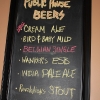 PUBLIC HOUSE
BEERS
CREAM ALE
BIRD & BABY MILD
BELGIAN JINGLE
WANDERER'S ESB
INDIA PALE ALE
STOUT